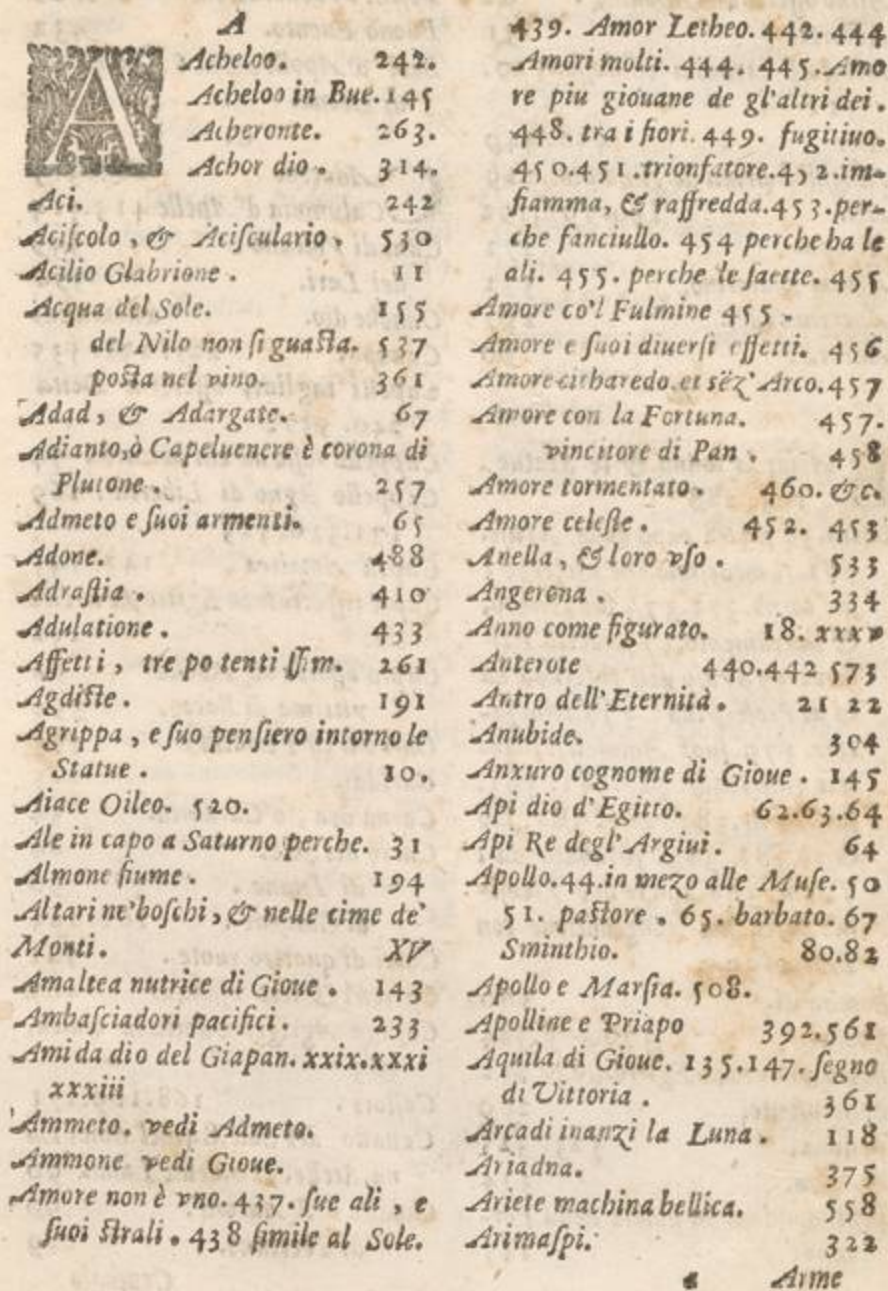 A
Acheloo. 242.
Acheloo in Bue. 145
Acheronte. 263.
Achor dio. 314.
Aci. 242
Aciſcolo, & Aciſculario, 530
Acilio Glabrione. 11
Acqua del Sole. 155
del Nilo non ſi guaſta. 537
poſta nel vino. 361
Adad, & Adargate. 67
Adianto, ò Capeluenere è corona di
Plutone. 257
Admeto e ſuoi armenti. 65
Adone. 488
Adraſtia. 410
Adulatione. 433
Affetti, tre potenti ſſim. 261
Agdiſte. 191
Agrippa, e ſuo penſiero intorno le
Statue. 10.
Aiace Oileo. 520.
Ale in capo a Saturno perche. 31
Almone fiume. 194
Altari ne' boſchi, & nelle cime de'
Monti. XV
Amaltea nutrice di Gioue. 143
Ambaſciadori pacifici. 233
Amida dio del Giapan. xxix. xxxi
xxxiii
Ammeto. vedi Admeto.
Ammone vedi Gioue.
Amore non è vno. 437. ſue ali, e
ſuoi ſtrali. 438 ſimile al Sole.
439. Amor Letheo. 442. 444
Amori molti. 444. 445. Amo
re piu giouane de gl'altri dei.
448. tra i fiori. 449. fugitiuo.
450. 451. trionfatore. 452. im-
fiamma, & raffredda. 453. per-
che fanciullo. 454 perche ha le
ali. 455. perche le ſaette. 455
Amore co'l Fulmine 455.
Amore e ſuoi diuerſi effetti. 456
Amore citharedo. et sēz' Arco. 457
Amore con la Fortuna. 457.
vincitore di Pan. 458
Amore tormentato. 460. &c.
Amore celeſte. 452. 453
Anella, & loro vſo. 533
Angerona. 334
Anno come figurato. 18. xxxv
Anterote 440. 442 573
Antro dell'Eternità. 21 22
Anubide. 304
Anxuro cognome di Gioue. 145
Api dio d'Egitto. 62. 63. 64
Api Re degl'Argiui. 64
Apollo. 44. in mezo alle Muſe. 50
51. paſtore. 65. barbato. 67
Sminthio. 80. 82
Apollo e Marſia. 508.
Apolline e Priapo 392. 561
Aquila di Gioue. 135. 147. ſegno
di Vittoria. 361
Arcadi inanzi la Luna. 118
Ariadna. 375
Ariete machina bellica. 558
Arimaſpi. 322
a Arme